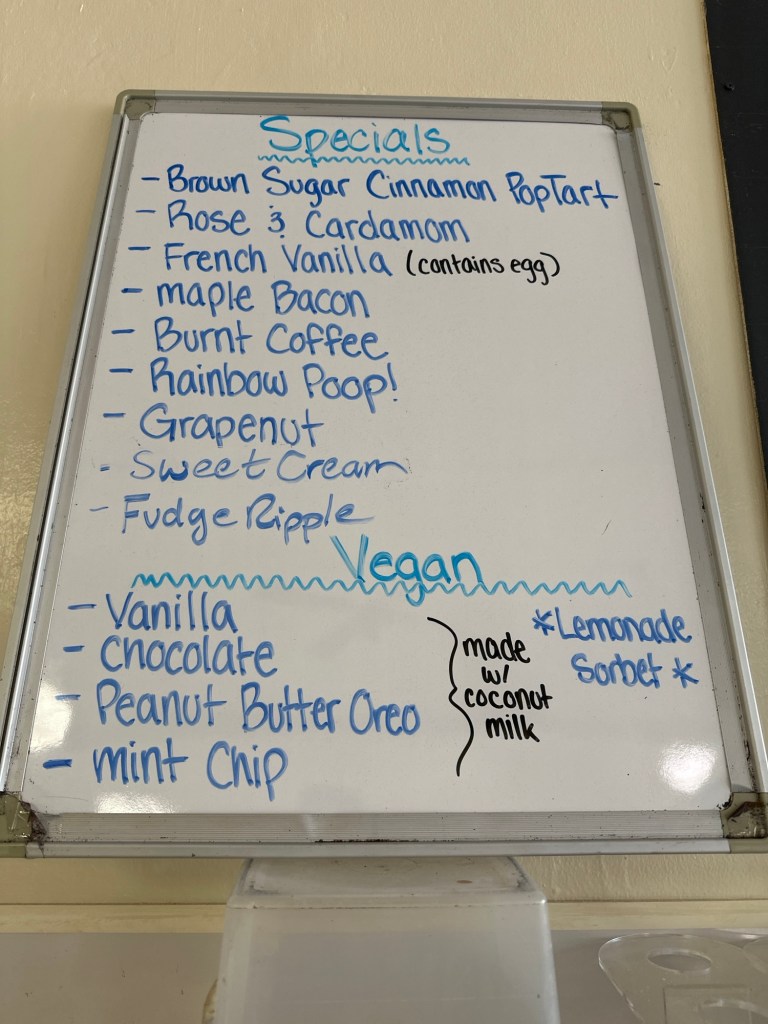 Specials
- Brown Sugar Cinnamon PopTart
- Rose & Cardamom
- French Vanilla (contains egg)
- maple Bacon
- Burnt Coffee
- Rainbow Poop!
- Grapenut
- Sweet Cream
- Fudge Ripple
Vegan
- Vanilla
- Chocolate
- Peanut Butter Oreo
- mint Chip
made
w/
coconut
milk
*Lemonade
Sorbet*